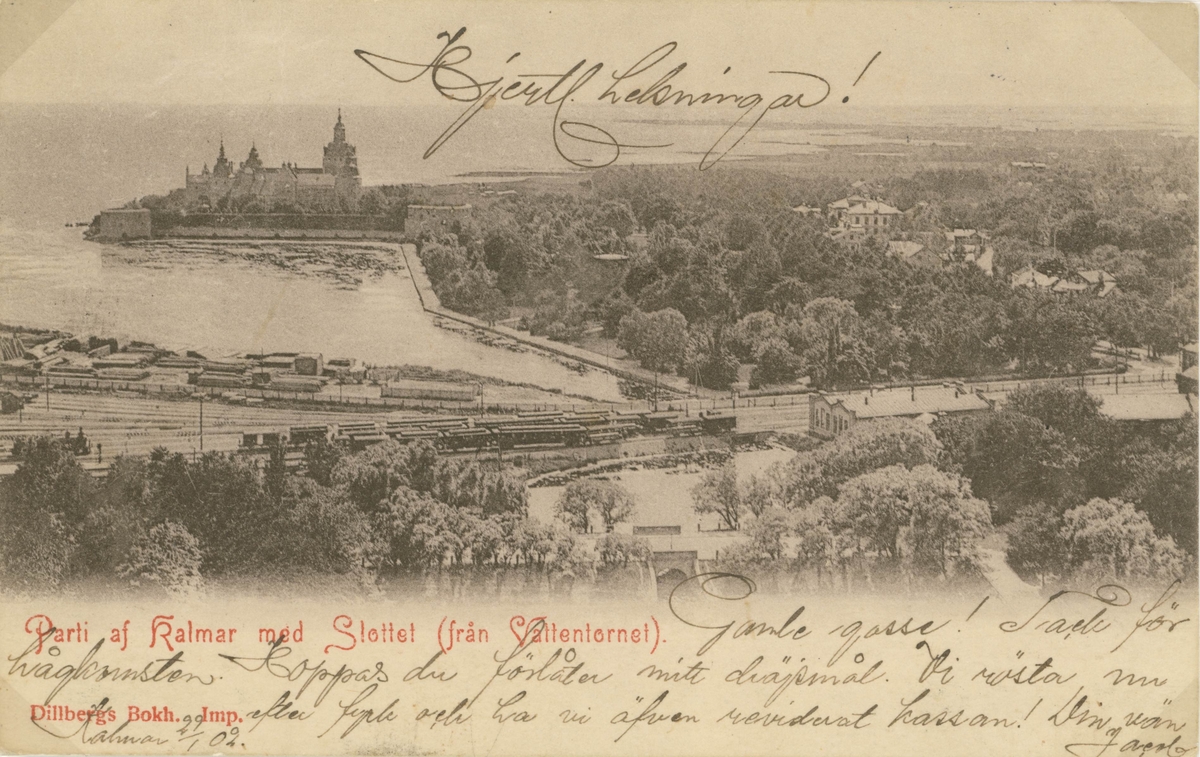 Hjertl. helsningar!
Parti af Kalmar med Slottet (från Vattentornet).
Gamle gosse! Tack för
hågkomsten. Hoppas du förlåter mitt dröjsmål. Vi rösta nu
Dillbergs Bokh. Imp.
efter fyrk och ha vi äfven reviderat kassan! Din vän
Kalmar 02.
Jacob